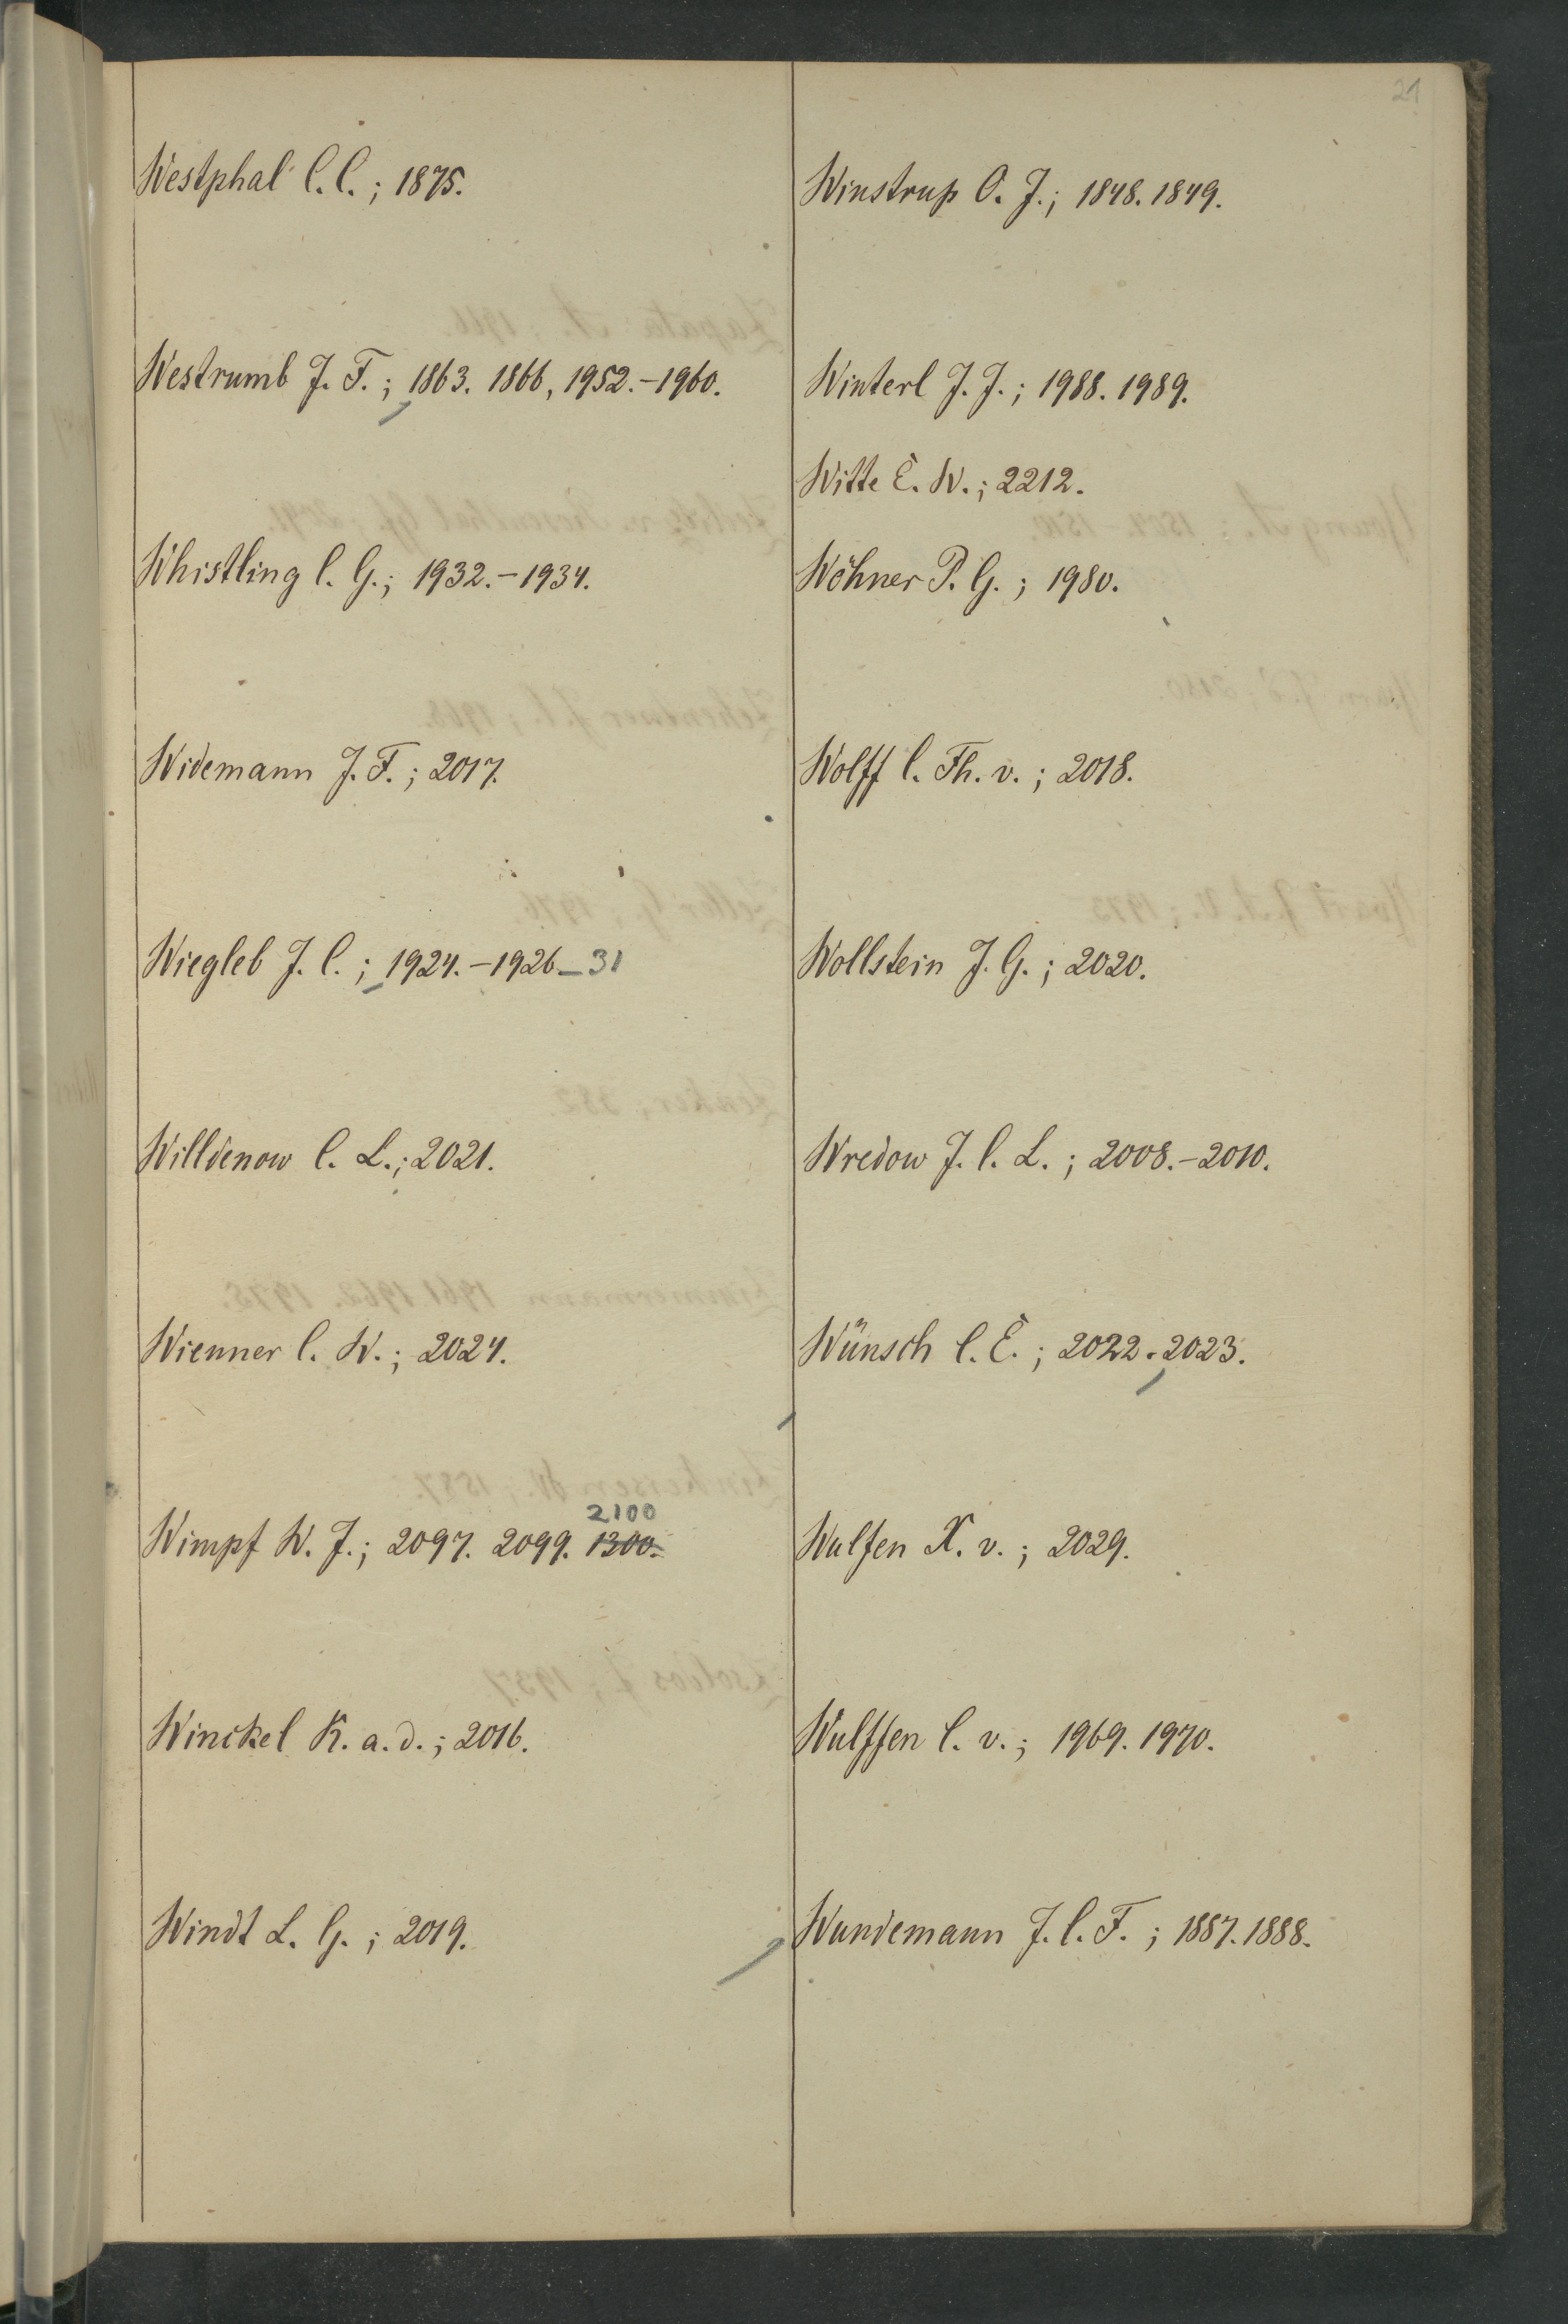 21
Westphal C. C. ; 1875.
Westrumb J. F. ; 1863. 1866, 1952.-1960.
Whistling C. G. ; 1932.-1934.
Widemann J. F. ; 2017.
Wiegleb J. C. ; 1924.-1926-31
Willdenow C. L. ; 2021.
Wienner C. W. ; 2024.
2100
Wimpf W. J. ; 2097. 2099. 1300.
Winckel K. a. d. ; 2016.
Windt L. G. ; 2019.
Winstrup O. J. ; 1848. 1849.
Winterl J. J. ; 1988. 1989.
Witte E. W. ; 2212.
Wöhner P. G. ; 1980.
Wolff C. Th. v. ; 2018.
Wollstein J. G. ; 2020.
Wredow J. C. L. ; 2008.-2010.
Wünsch C. E. ; 2022. 2023.
Wulfen X. v. ; 2029.
Wulffen C. v. ; 1969. 1970.
Wundemann J. C. F. ; 1887. 1888.